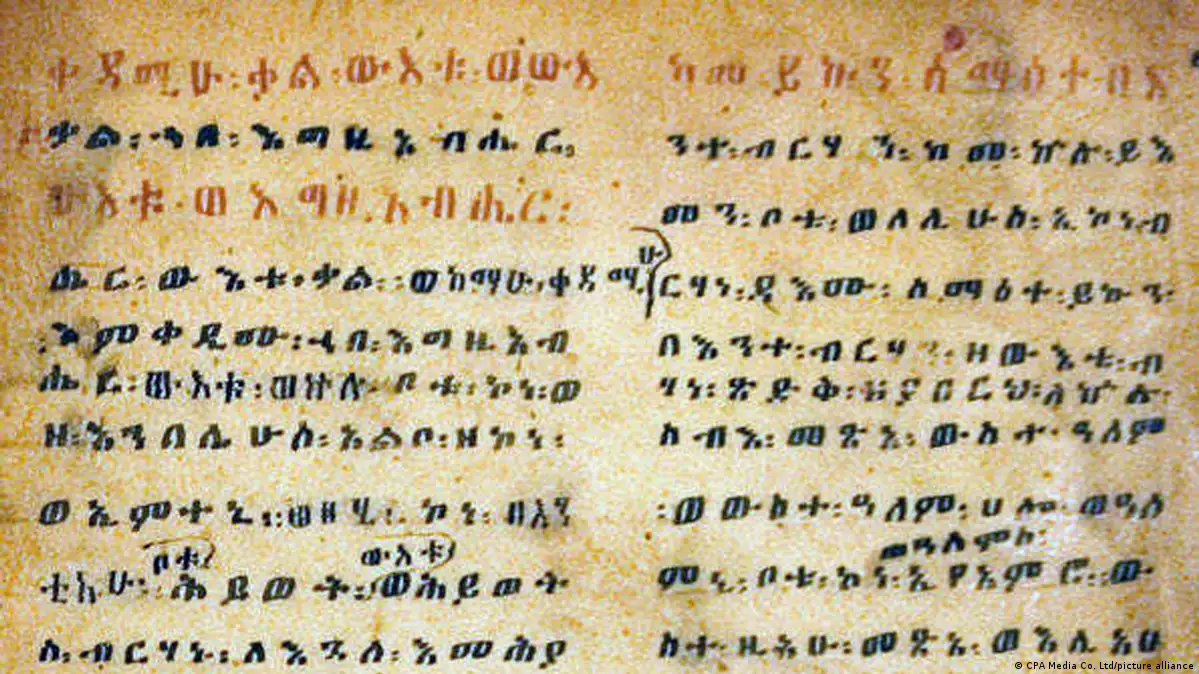 ቀዳሚሁ፡ቃል፡ውእቱ፡ወውእ
ቃል፡ኀበ፡እግዚአብሔር፡
ውእቱ፡ወእግዚአብሔር፡
ሔር፡ውእቱ፡ቃል፡፡ወከማሁ፡ቀዳሚ
ሁ
እምቀዲሙ፡ኀበ፡እግዚአብ
ሔር፡ውእቱ፡ወኵሉ፡ቦቱ፡ኮነ፡ወ
ዘ፡እንበሌሁሰ፡አልቦ፡ዘኮነ፡
ወኢምተኒ፡፡ወዘሂ፡ኮነ፡በእን
ቦቱ ውእቱ
ቲአሁ፡ሕይወት፡ወሕይወት
ሰ፡ብርሃኑ፡ለእጓለ፡እመሕያ
ከመ፡ይኩን፡ሰማዕተ፡በእ
ንተ፡ብርሃን፡ከመ፡ኵሉ፡ይእ
መን፡ቦቱ፡ወለሊሁሰ፡ኢኮነ፡ብ
ርሃነ፡ዳእሙ፡ሰማዕተ፡ይኩን፡
በእንተ፡ብርሃን፡ዘውእቱ፡ብ
ሃነ፡ጽድቅ፡ዘያበርህ፡ለኵሉ፡
ሰብእ፡መጽአ፡ውስተ፡ዓለም
፡ወውስተ፡ዓለም፡ሀሎ፡ወዓለ
ወዓለምሰ፡
ሙኒ፡ቦቱ፡ኮነ፡ኢያእምሮ፡፡ው
ስተ፡ዚአሁ፡መጽአ፡ወእሊአሁ
© CPA Media Co. Ltd/picture alliance